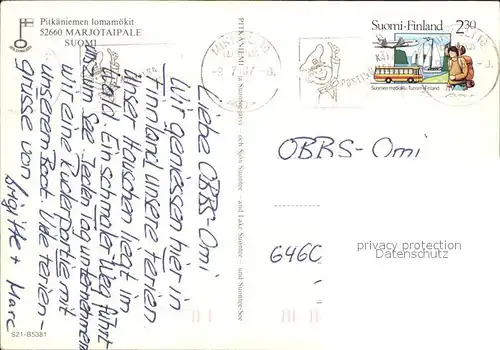 Pitkäniemen lomamökit
52660 MARJOTAIPALE
SUOMI
Suomi-Finland 2,30
Suomen matkailu · Turism i Finland
Liebe OBBS-Omi
Wir geniessen hier in
Finnland unsere Ferien
Unser Häuschen liegt im
Wald. Ein schmaler Weg führt
uns zum See. Jeden Tag unternehmen
wir eine Ruderpartie mit
unserem Boot. Viele Ferien-
grüsse von
Brigitte + Marc
PITKÄNIEMI
och Sjön Suontee
and Lake Suontee
und Suontee-See
OBBS-Omi
646C
privacy protection
Datenschutz
S21-B5381